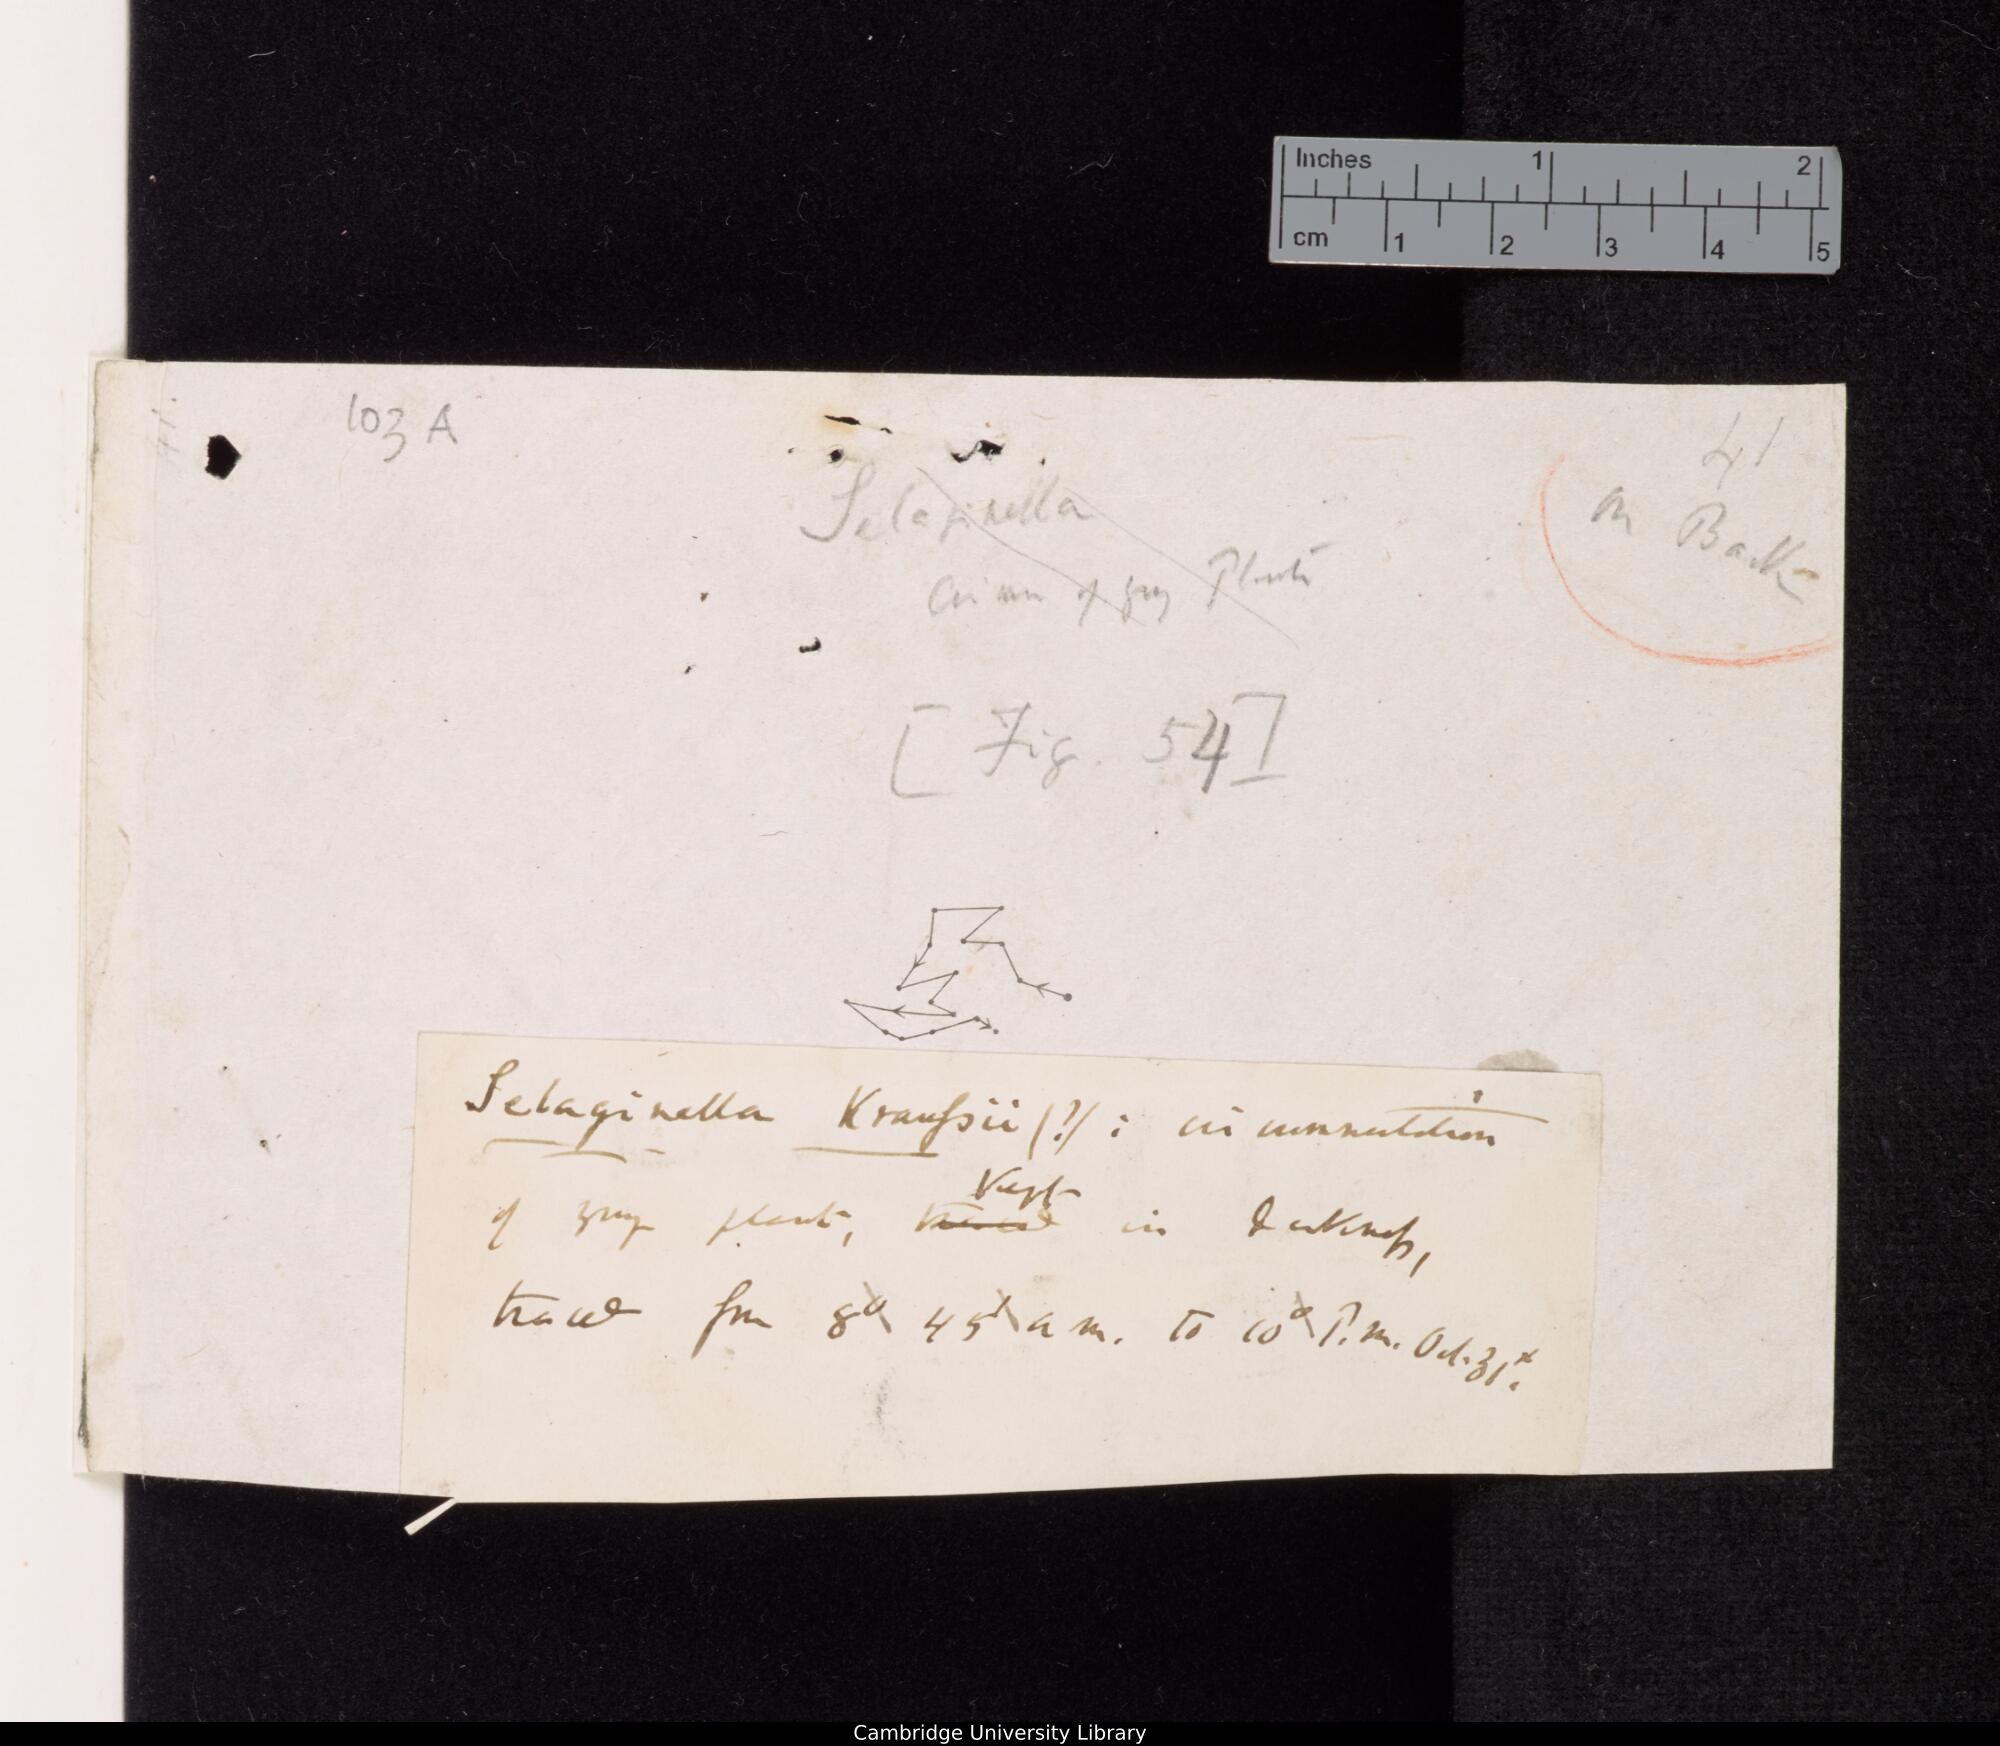 Inches 1 2
cm 1 2 3 4 5
103 A
41
on Back
Selaginella
Circum of young Plant
[Fig. 54]
Selaginella Kraussii (?) : circumnutation
of young plant, traced Kept in darkness,
traced from 8° 45' a.m. to 10° P.m. Oct. 31st.
Cambridge University Library